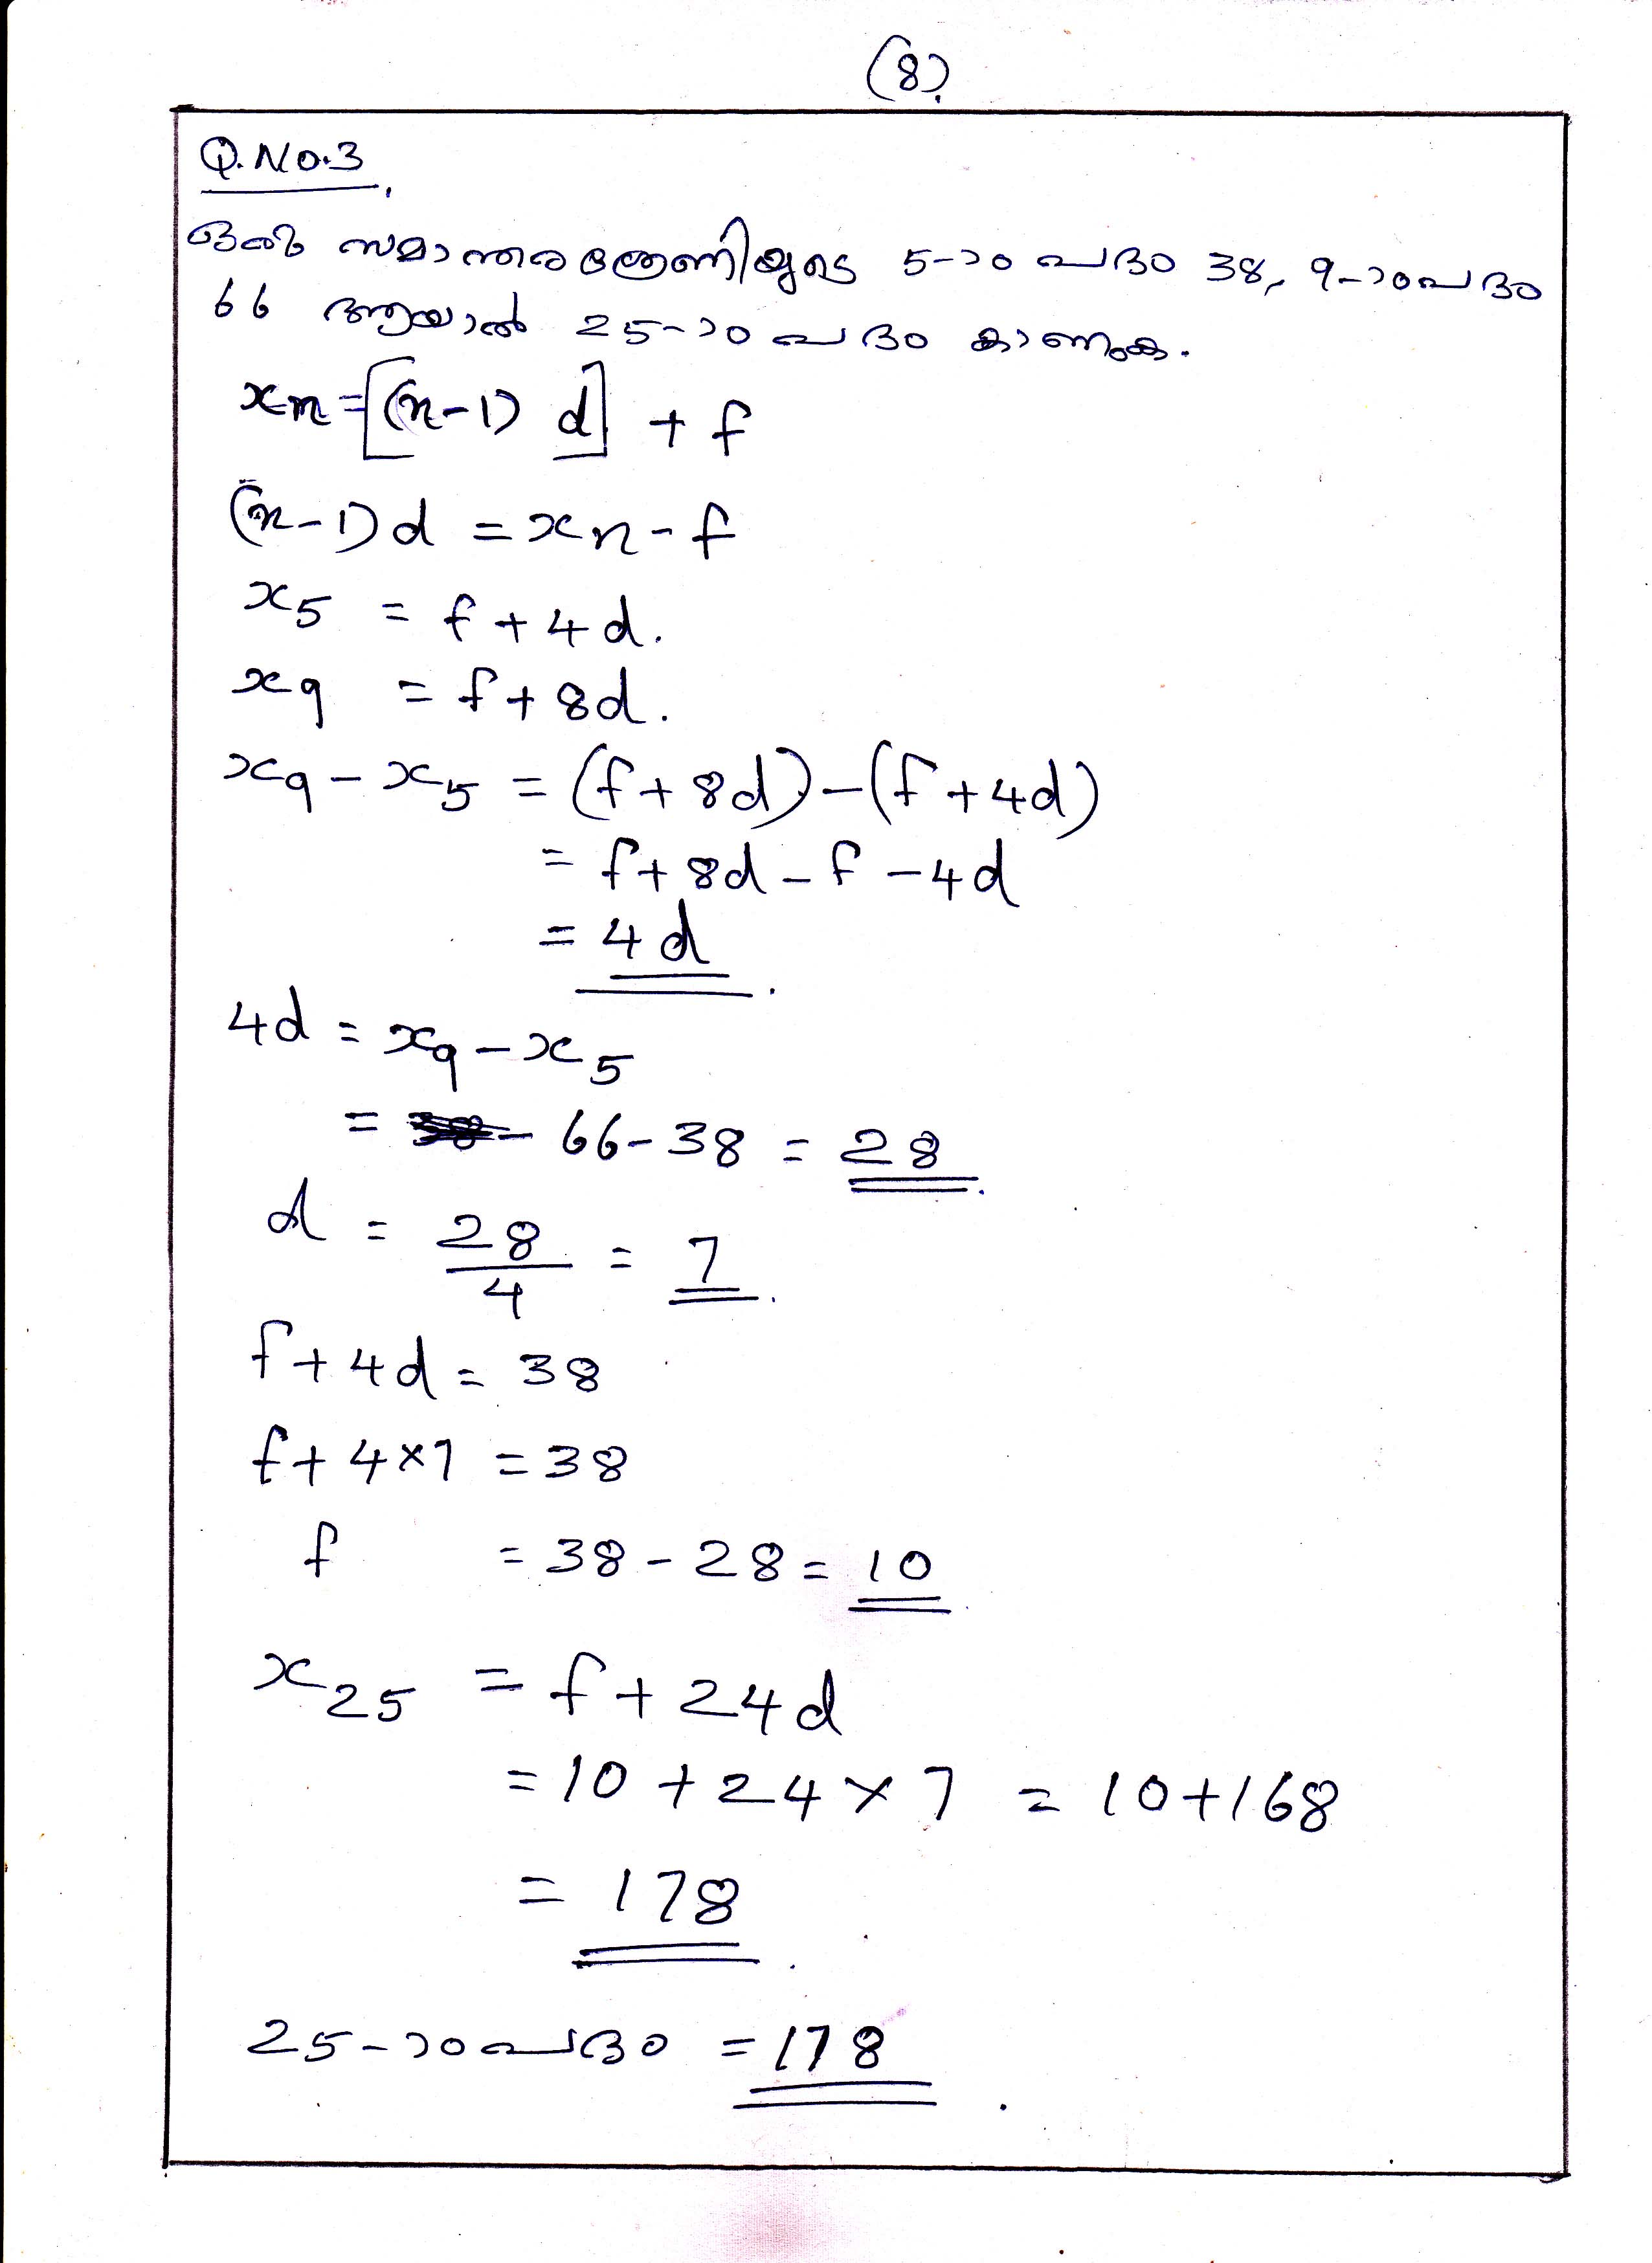 (8)
Q.No.3
ഒരു സമാന്തരശ്രേണിയുടെ 5-ാം പദം 38, 9-ാം പദം
66 ആയാൽ 25-ാം പദം കാണുക.
xn = [(n-1) d] + f
(n-1)d = xn - f
x5 = f + 4d.
x9 = f + 8d.
x9 - x5 = (f + 8d) - (f + 4d)
= f + 8d - f - 4d
= 4d
4d = x9 - x5
= 66 - 38 = 28
d = 28/4 = 7
f + 4d = 38
f + 4×7 = 38
f = 38 - 28 = 10
x25 = f + 24d
= 10 + 24 × 7 = 10 + 168
= 178
25-ാം പദം = 178